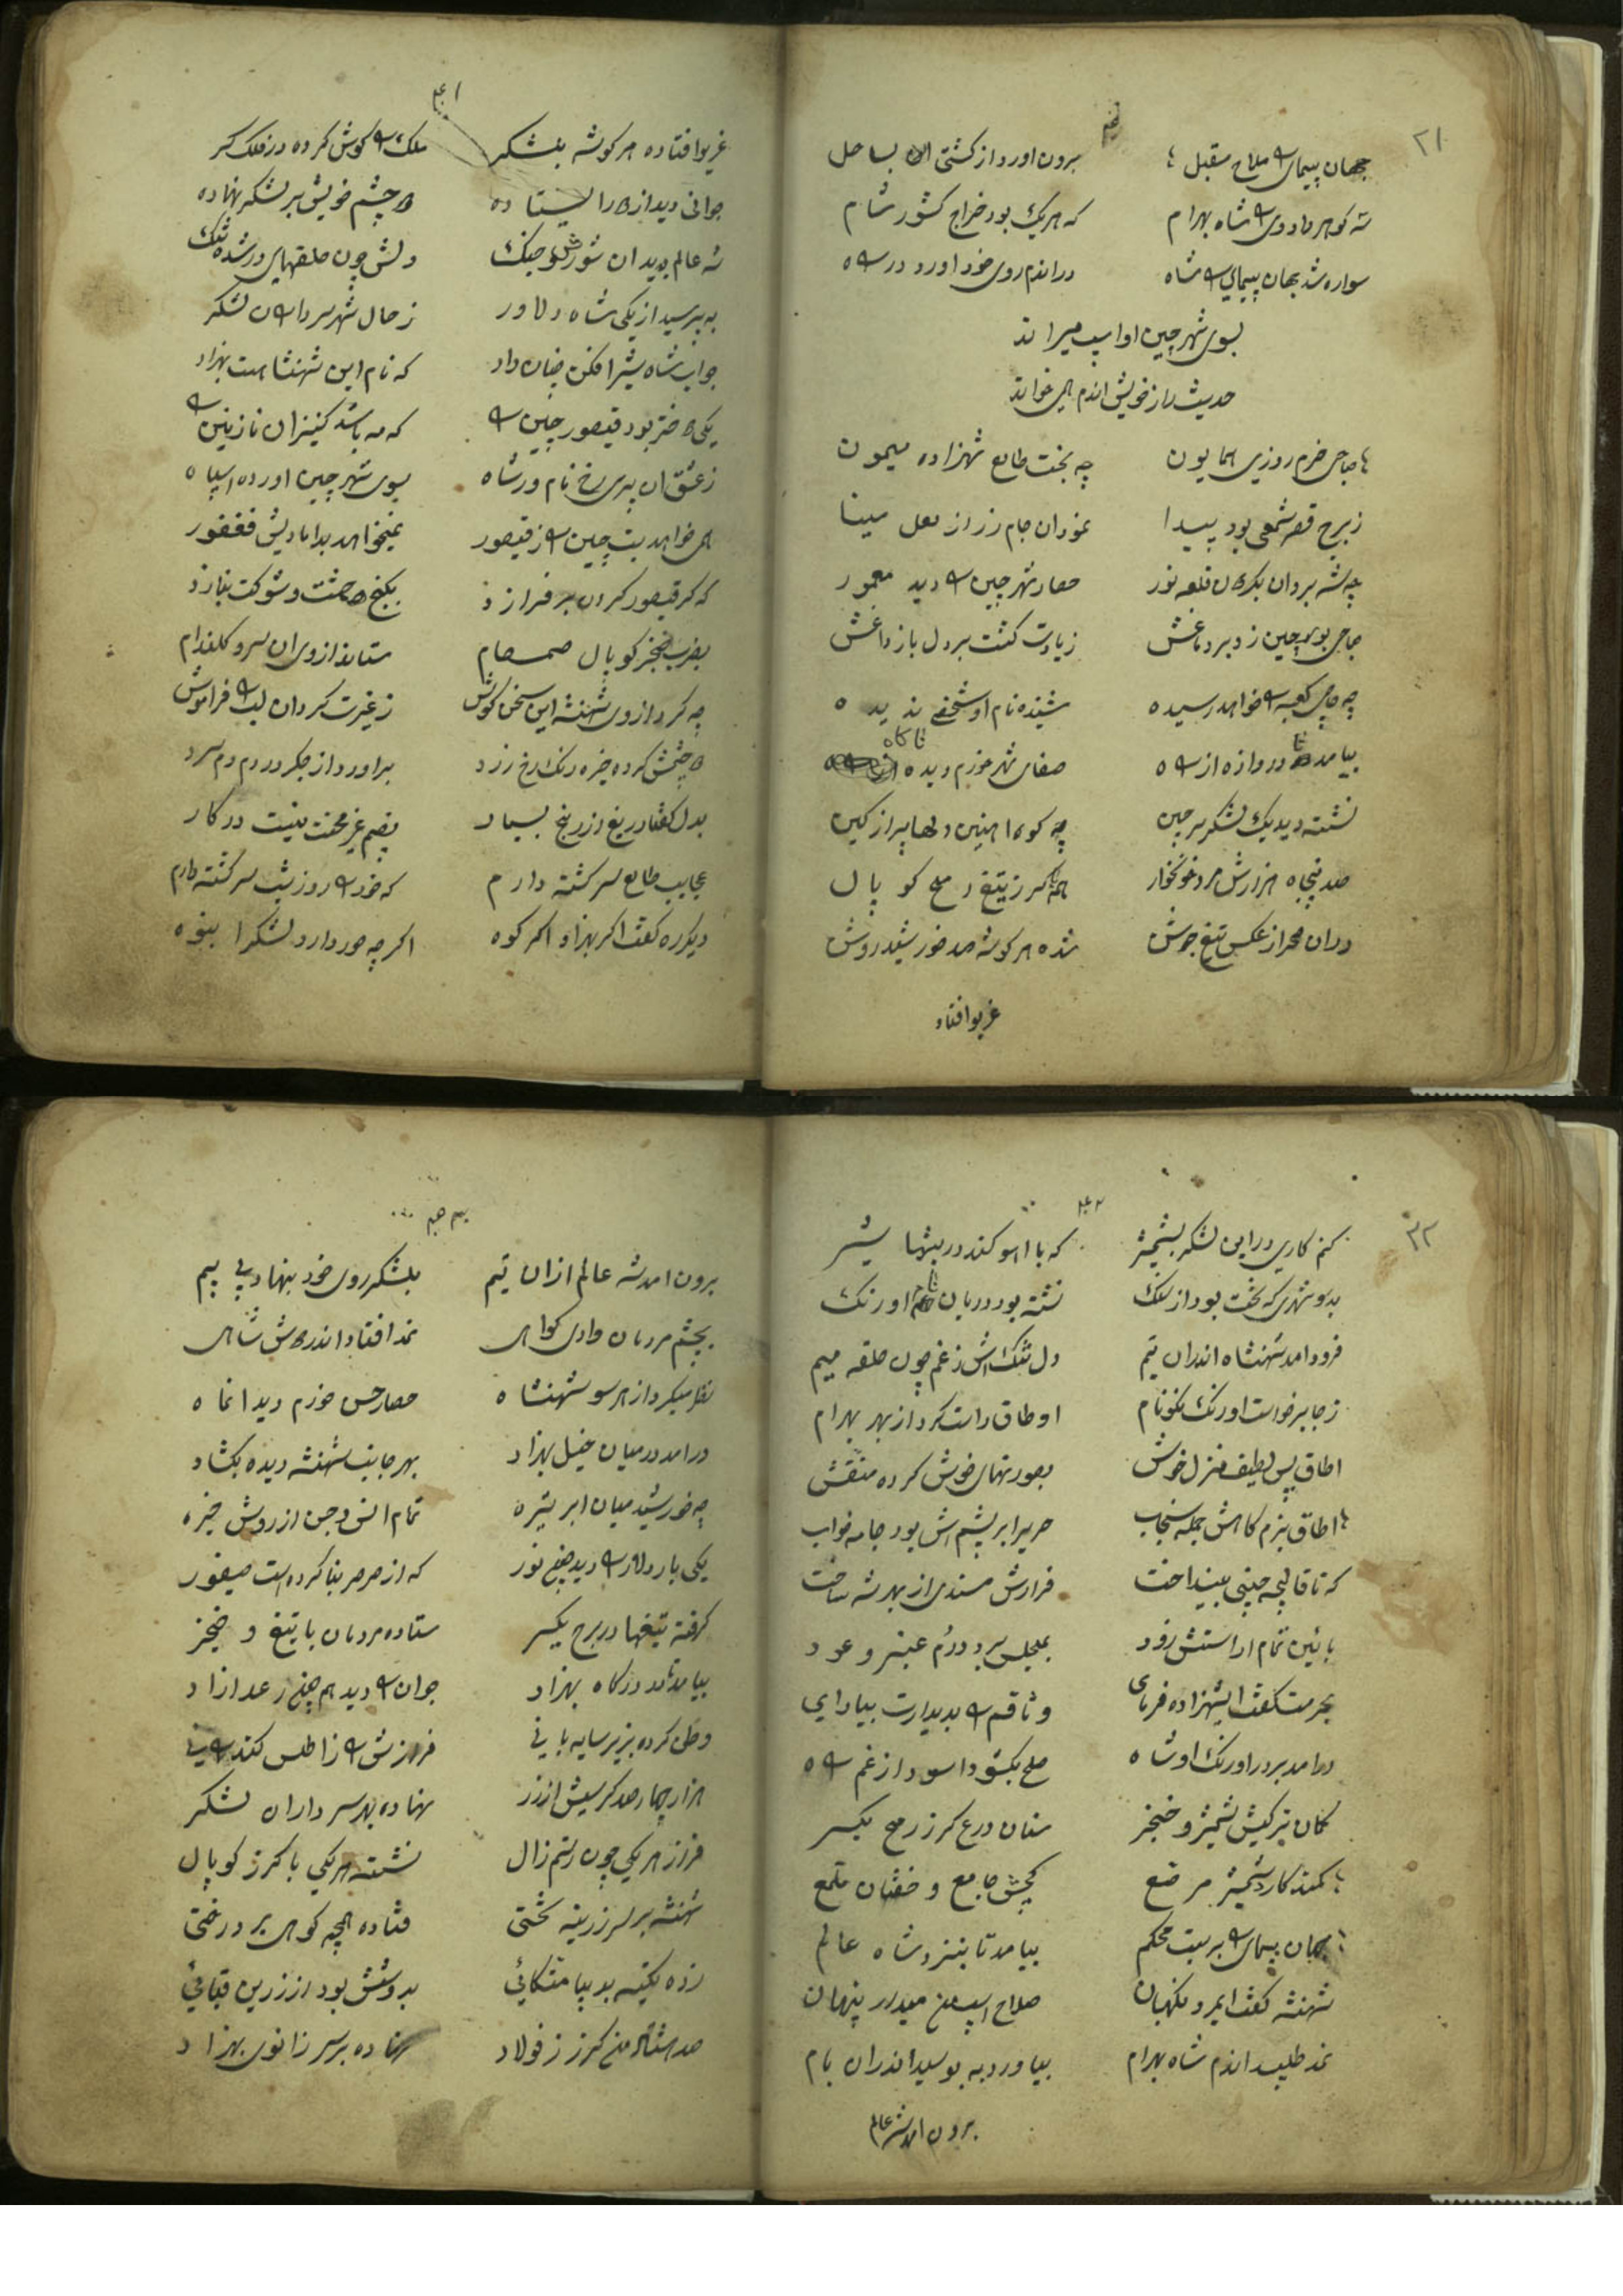 ۳۱
جهان پیمای را ملاح مقبل
برون اورد از کشتی بساحل
سه کوهر داد وی را شاه بهرام
که هریک بود خراج کشور شام
سواره شد بجهان پیمای را شاه
دراندم روی خود اورد در راه
بسوی شهر چین او اسپ میراند
حدیث راز خویش اندم همی خواند
صباحی خرم روزی همایون
چه بخت طالع شهزاده میمون
ز برج قصر شمعی بود پیدا
نمودان جام زر از لعل مینا
حصار شهر چین را دید معمور
زیادت کشت بر دل باز داغش
چه حاجی کعبه را خواهد رسیده
شنیده نام او شخصی ندیده
بیامد تا در دروازه از راه
صفای شهر خورم دیده ناکاه
نشسته دید یک لشکر بر چین
چه کوه اهنین دلها پر از کین
صد پنجاه هزارش مرد خونخوار
همه با کرز تیغ رمح کوپال
دران صحرا ز عکس تیغ جوش
شده هر کوشه صد خورشید روش
غریو افتاد
غریو افتاده هر کوشه بلشکر
ملک را کوش کرده در فلک کر
جوانی دید از دور ایستاده
دو چشم خویش بر لشکر نهاده
شه عالم بدید ان شورش و جنک
دلش چون حلقهای در شده تنک
به پرسید از یکی شاه دلاور
ز حال شهر سردار ان لشکر
جواب شاه شیر افکن چنان داد
که نام این شهنشا هست بهزاد
یکی دختر بود فیصور چین را
که مه باشد کنیز ان نازنین را
ز عشق ان پری رخ نام ور شاه
بسوی شهر چین اورده اسپاه
همی خواهد بت چین را ز فیصور
نمیخواهد بدامادیش فغفور
که کر فیصور کردن بر فرازد
بکنج حشمت و شوکت بنازد
بضرب خنجر کوپال صمصام
ستاند از وی ان سرو کلندام
چه کرد از وی شهنشه این سخن کوش
ز غیرت کرد ان لب را فراموش
دو چشمش کرده خیره رنک رخ زرد
براورد از جکر در دم دم سرد
بدل کفتا دریغ از رنج بسیار
نصیبم غیر محنت نیست در کار
عجایب طالع سرکشته دارم
که خود را روز شب سرکشته دارم
دیکر ره کفت اکر بهزاد اکر کوه
اکر چه حور دارد لشکر انبوه
۳۲
کنم کاری در این لشکر بشمشیر
که با اهو کند در بیشها شیر
فرود امد شهنشاه اندران تیم
دل تنک اش ز غم چون حلقه میم
ز جا برخواست اورنک نکونام
اوطاق راست کرد از بهر بهرام
اطاق پس لطیف منزل خوش
بصورتهای خوش کرده منقش
حریر ابریشم اش بود جامه خواب
که تا قالیچه چینی بینداخت
فرارش مسندی از بهر شه ساخت
بائین تمام اراستش زود
بمجلس برد دردم عنبر و عود
بحرمت کفت ای شهزاده فرمای
وثاقم را بدیدارت بیارای
درامد بر در اورنک او شاه
کمان ترکیش شمشیر و خنجر
سنان درع کرز رمح یکسر
کمند کارد شمشیر مرصع
جهان پیمای را بربست محکم
بیامد تا بنزد شاه عالم
شهنشه کفت ای مرد نکهبان
نمد طلبید اندم شاه بهرام
بیاورد به پوشید اندران بام
برون امد شه عالم
برون امد شه عالم ازان تیم
بلشکر روی خود بنهاد بی بیم
بچشم مردمان دادی کواهی
نمد افتاد اندر دوش شاهی
نظر میکرد از هر سو شهنشاه
درامد در میان خیل بهزاد
بهر جانب شهنشه دیده بکشاد
چه خورشید میان ابر تیره
تمام انس و جن از روش خیره
کرفته تیغها در برج یکسر
ستاده مردمان با تیغ و خنجر
بیامد تا در درکاه بهزاد
هزار چهارصد کرسیش از زر
نهاده بهر سرداران لشکر
فراز هر یکی چون رستم زال
نشسته هر یکی با کرز کوپال
شهنشه بر سر زرینه تختی
فتاده همچه کوهی بر درختی
زده تکیه بدیبا متکائی
بدوشش بود از زرین قبائی
صد هشتاد من کرز ز فولاد
نهاده بر سر زانوی بهزاد